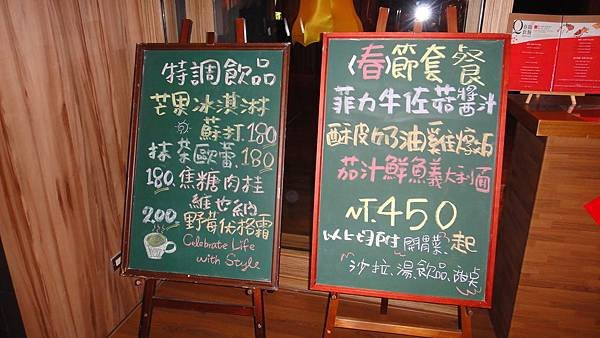 特調飲品
芒果冰淇淋
蘇打.180
抹茶歐蕾.180
180.焦糖肉桂
維也納
200.野莓优格霜
Celebrate Life
with Style
(春)節套餐
菲力牛佐茄醬西汁
酥皮奶油雞燉
茄汁鮮魚義大利面
NT.450起
以上均附開胃菜、
沙拉、湯、飲品、甜桌